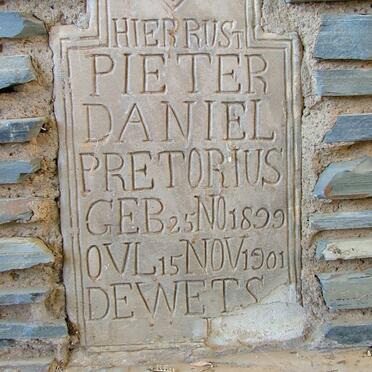 HIER RUST
PIETER
DANIEL
PRETORIUS
GEB 25 NO 1899
OVL 15 NOV 1901
DEWETS